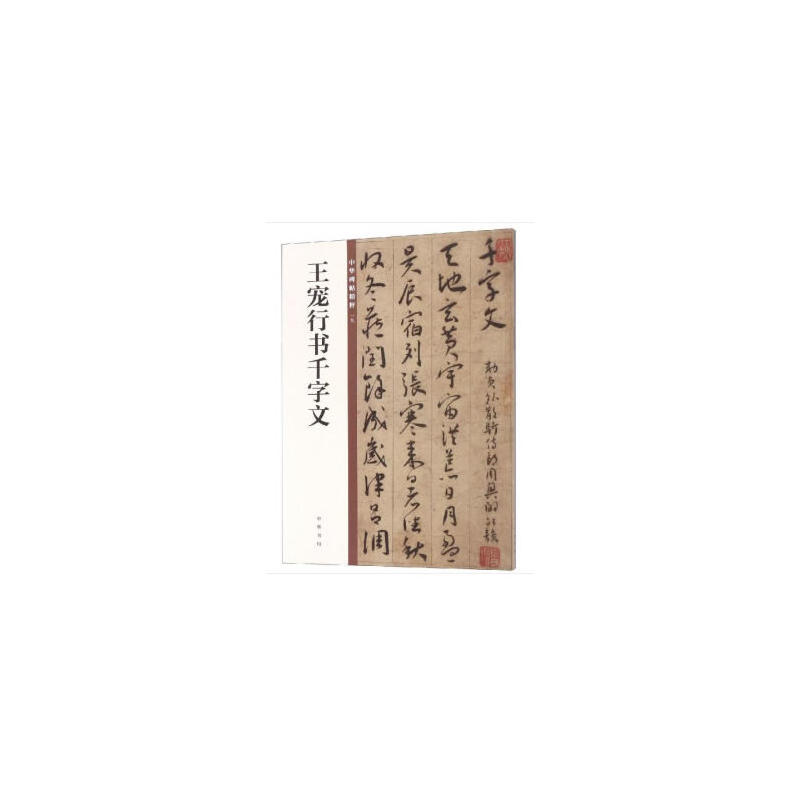 王宠行书千字文
中华碑帖精粹
中华书局
千字文
勅員外散騎侍郎周興嗣次韻
天地玄黄宇宙洪荒日月盈
昃辰宿列張寒来暑往秋
收冬蔵閏餘成歲律吕調